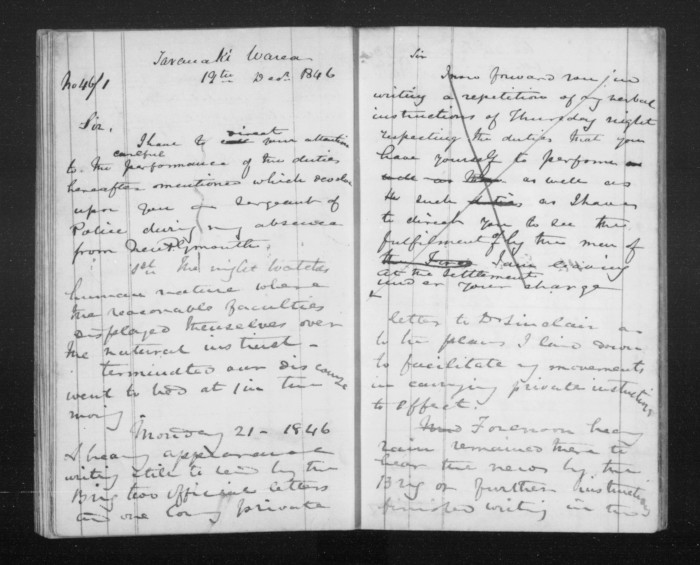 Taranaki Warea
No 46/1
19th Decr 1846
Sir,
I have to call direct your attention
to the careful performance of the duties
hereafter mentioned which devolve
upon you as Sergeant of
Police during my absence
from New Plymouth,
1st The night Watches
human nature where
the reasonable faculties
displayed themselves over
the natural instinct -
terminated our discourse
went to bed at 1 in the
morng
Monday 21 - 1846
heavy appearance
writing still to send by the
Brig two official letters
and one long private
Sir
I now forward you in
writing a repetition of my verbal
instructions of Thursday night
respecting the duties that you
have yourself to perform
as well as
such duties as I have
to direct you to see the
fulfilment of by the men of
at the Settlement
under your charge
letter to Dr Sinclair as
to the plans I laid down
to facilitate my movements
in carrying private instructions
to effect.
Forenoon heavy
rain remained there to
hear the news by the
Brig or further instructions
finished writing in the